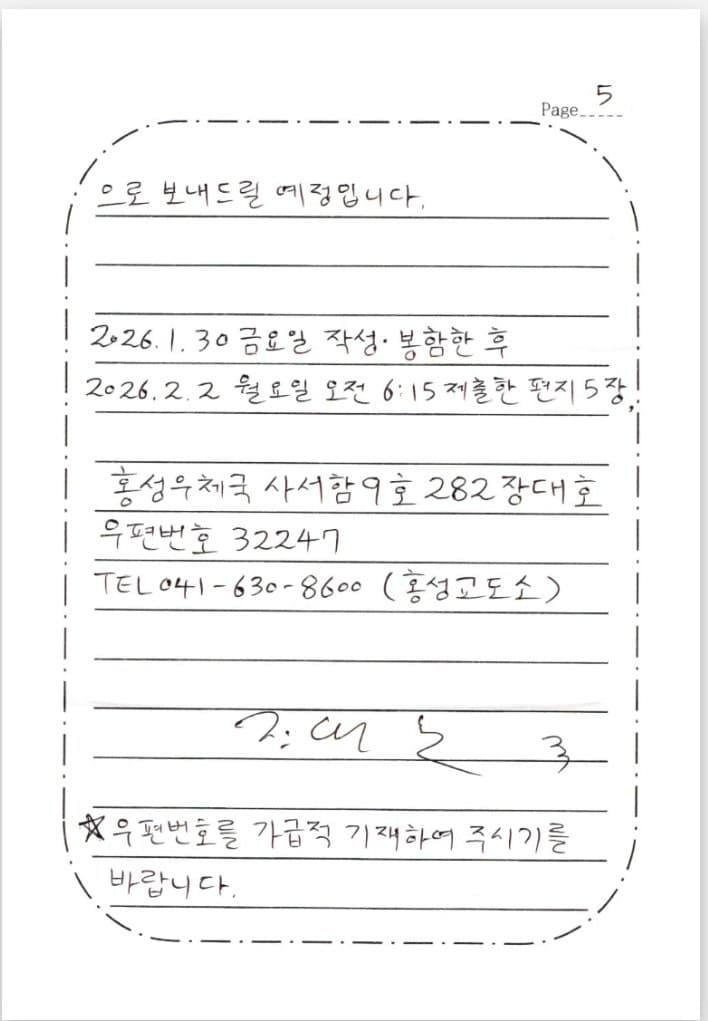 Page 5
으로 보내드릴 예정입니다.
2026.1.30 금요일 작성·봉함한 후
2026.2.2 월요일 오전 6:15 제출한 편지 5장,
홍성우체국 사서함 9호 282 장대호
우편번호 32247
TEL 041-630-8600 (홍성교도소)
☆우편번호를 가급적 기재하여 주시기를
바랍니다.